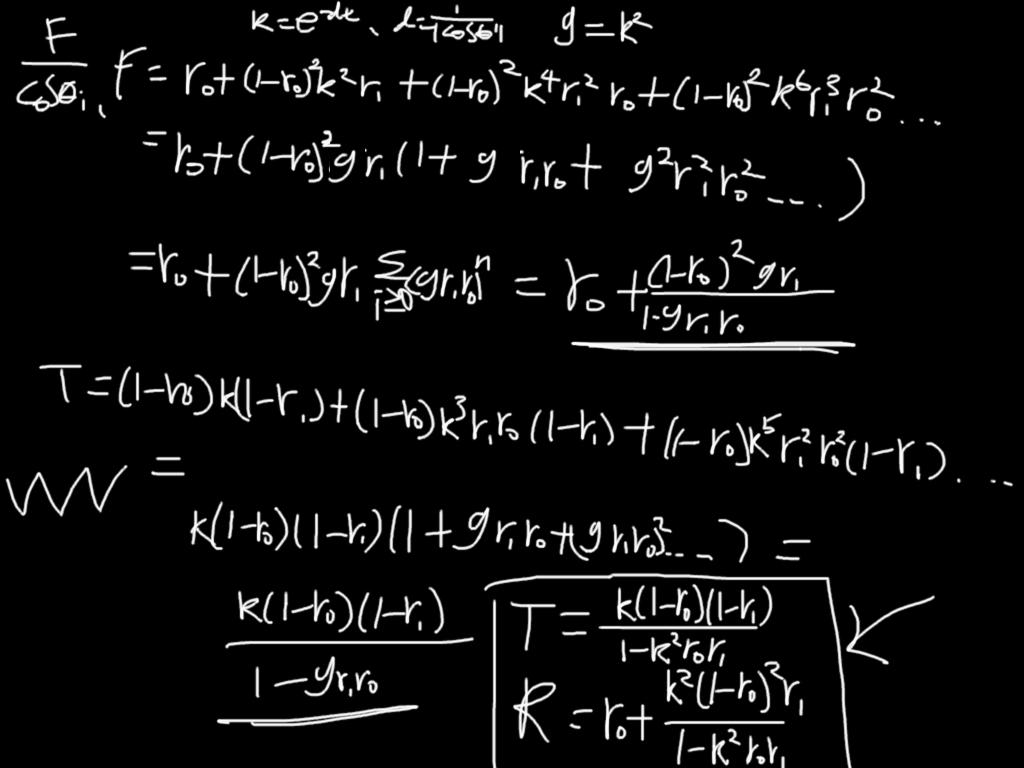 k=e^{-αl}、l=\frac{1}{|cosθ_1|} g=k²
\frac{F}{cosθ_i}, F=r₀+(1-r₀)²k²r₁+(1-r₀)²k⁴r₁²r₀+(1-r₀)²k⁶r₁³r₀²...
=r₀+(1-r₀)²gr₁(1+g r₁r₀+g²r₁²r₀²....)
=r₀+(1-r₀)²gr₁ \sum_{i≥0}(gr₁r₀)ⁿ = r₀+\frac{(1-r₀)²gr₁}{1-gr₁r₀}
T=(1-r₀)k(1-r₁)+(1-r₀)k³r₁r₀(1-r₁)+(1-r₀)k⁵r₁²r₀²(1-r₁)....
=
k(1-r₀)(1-r₁)(1+gr₁r₀+(gr₁r₀)²....)=
\frac{k(1-r₀)(1-r₁)}{1-gr₁r₀}
T=\frac{k(1-r₀)(1-r₁)}{1-k²r₀r₁}
R=r₀+\frac{k²(1-r₀)²r₁}{1-k²r₀r₁}